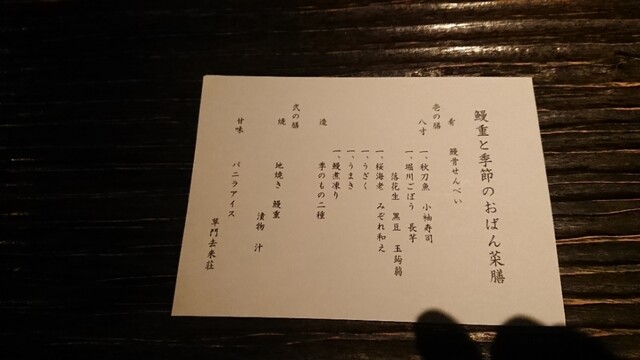 鰻重と季節のおばん菜膳
肴　鰻骨せんべい
壱の膳
八寸　一、秋刀魚　小袖寿司
一、堀川ごぼう　長芋
落花生　黒豆　玉蒟蒻
一、桜海老　みぞれ和え
一、うざく
一、うまき
一、鰻煮凍り
造　季のもの二種
弐の膳
焼　地焼き　鰻重
漬物　汁
甘味　バニラアイス
草門去来荘